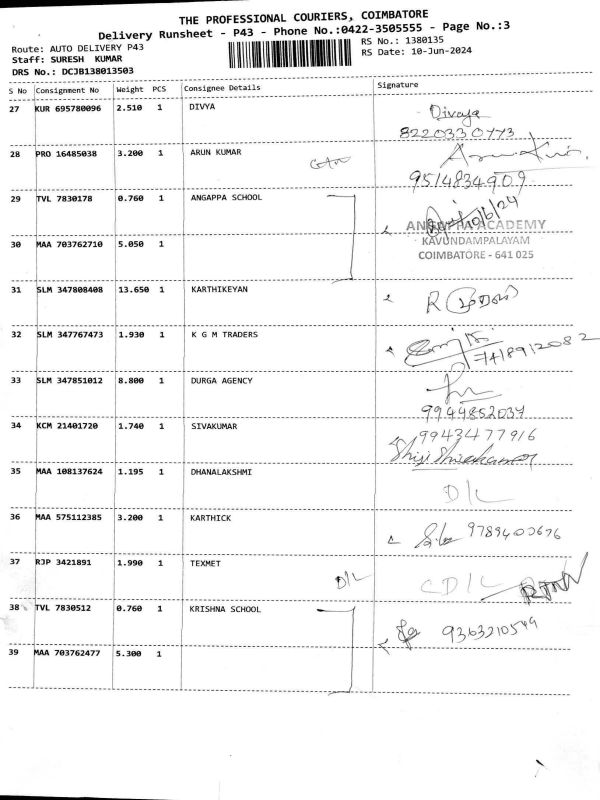 THE PROFESSIONAL COURIERS, COIMBATORE
Delivery Runsheet - P43 - Phone No.:0422-3505555 - Page No.:3
Route: AUTO DELIVERY P43
RS No.: 1380135
Staff: SURESH KUMAR
RS Date: 10-Jun-2024
DRS No.: DCJB138013503
S No Consignment No Weight PCS Consignee Details Signature
27 KUR 695780096 2.510 1 DIVYA Divaya
8220330773
28 PRO 16485038 3.200 1 ARUN KUMAR
9514834909
29 TVL 7830178 0.760 1 ANGAPPA SCHOOL 10/6/24
ANGAPPA ACADEMY
30 MAA 703762710 5.050 1 KAVUNDAMPALAYAM
COIMBATORE - 641 025
31 SLM 347808408 13.650 1 KARTHIKEYAN R
32 SLM 347767473 1.930 1 K G M TRADERS
7418912082
33 SLM 347851012 8.800 1 DURGA AGENCY
9944852037
34 KCM 21401720 1.740 1 SIVAKUMAR 9943477916
35 MAA 108137624 1.195 1 DHANALAKSHMI D/L
36 MAA 575112385 3.200 1 KARTHICK 9789400676
37 RJP 3421891 1.990 1 TEXMET D/L CD/L
38 TVL 7830512 0.760 1 KRISHNA SCHOOL 9363210599
39 MAA 703762477 5.300 1